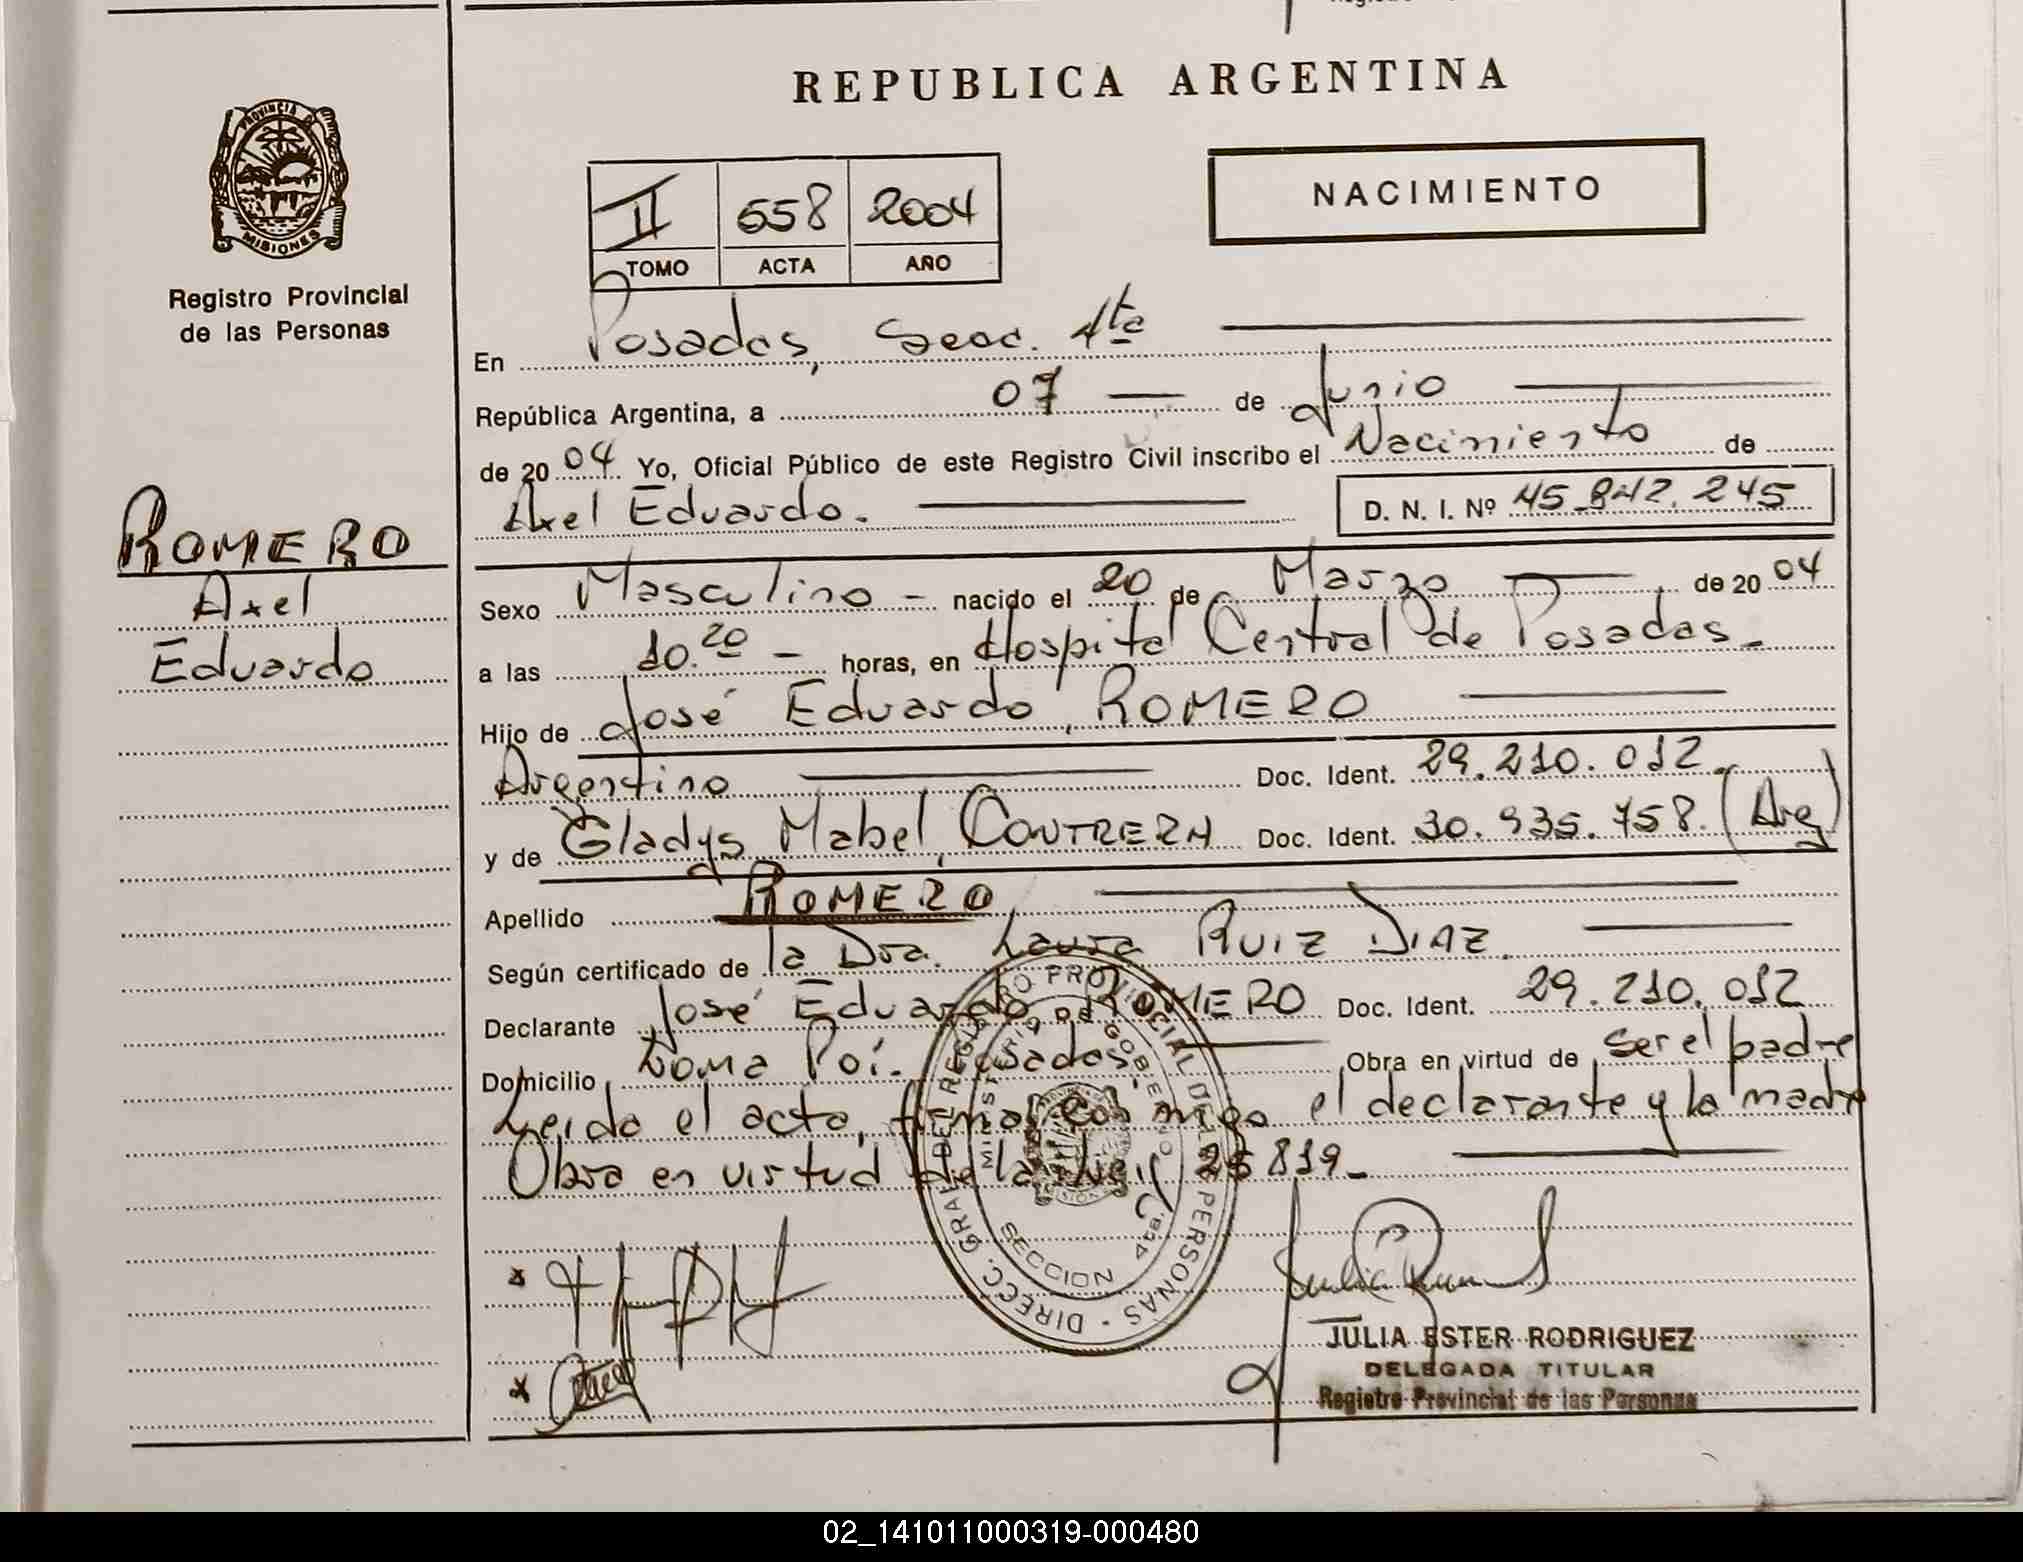 REPUBLICA ARGENTINA
PROVINCIA DE
MISIONES
Registro Provincial
de las Personas
NACIMIENTO
II 558 2004
TOMO ACTA AÑO
En Posadas, Secc. 4ta
República Argentina, a 07 de Junio
de 2004. Yo, Oficial Público de este Registro Civil inscribo el Nacimiento de
Axel Eduardo. D. N. I. Nº 45.842.245
ROMERO
Axel
Eduardo
Sexo Masculino - nacido el 20 de Marzo de 2004
a las 10.20 - horas, en Hospital Central de Posadas.-
Hijo de José Eduardo, ROMERO
Argentino Doc. Ident. 29.210.012.
y de Gladys Mabel, CONTRERA Doc. Ident. 30.935.758. (Arg)
Apellido ROMERO
Según certificado de la Dra. Laura RUIZ DIAZ.
Declarante José Eduardo ROMERO Doc. Ident. 29.210.012
Domicilio Loma Poí. Posadas.- Obra en virtud de ser el padre
Leída el acta, firman conmigo el declarante y la madre
Obra en virtud de la Ley 25819.-
DIRECC. GRAL. DEL REGISTRO PROVINCIAL DE LAS PERSONAS -
MINISTERIO DE GOBIERNO
SECCION 4ta.
JULIA ESTER RODRIGUEZ
DELEGADA TITULAR
Registro Provincial de las Personas
02_141011000319-000480